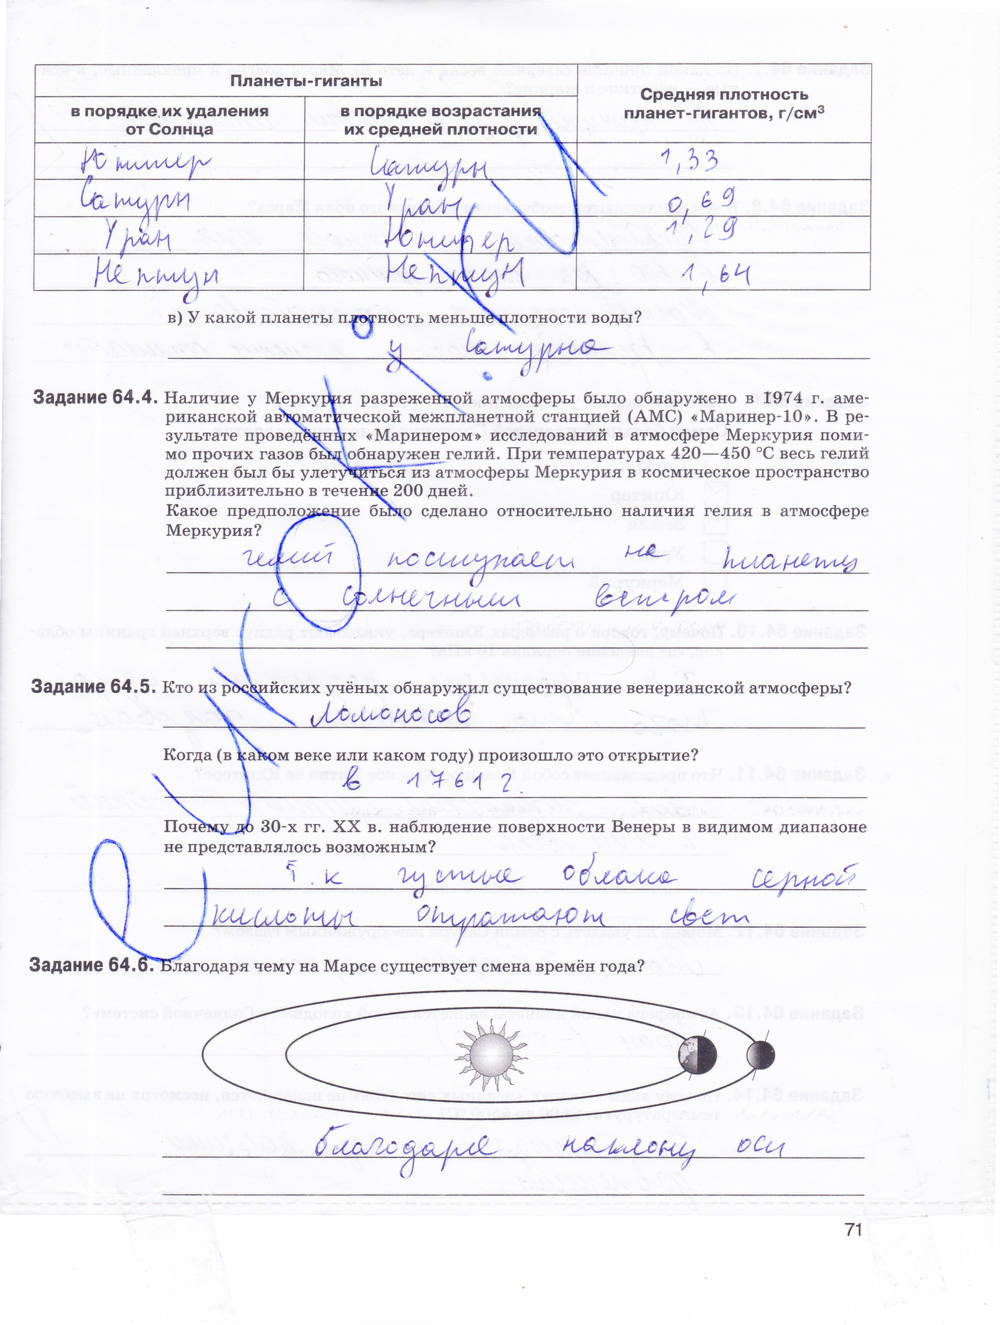 Планеты-гиганты
Средняя плотность
планет-гигантов, г/см³
в порядке их удаления
от Солнца
в порядке возрастания
их средней плотности
Юпитер Сатурн 1,33
Сатурн Уран 0,69
Уран Юпитер 1,29
Нептун Нептун 1,64
в) У какой планеты плотность меньше плотности воды?
у Сатурна
Задание 64.4. Наличие у Меркурия разреженной атмосферы было обнаружено в 1974 г. аме-
риканской автоматической межпланетной станцией (АМС) «Маринер-10». В ре-
зультате проведённых «Маринером» исследований в атмосфере Меркурия поми-
мо прочих газов был обнаружен гелий. При температурах 420—450 °С весь гелий
должен был бы улетучиться из атмосферы Меркурия в космическое пространство
приблизительно в течение 200 дней.
Какое предположение было сделано относительно наличия гелия в атмосфере
Меркурия?
гелий поступает на планету
с солнечным ветром
Задание 64.5. Кто из российских учёных обнаружил существование венерианской атмосферы?
Ломоносов
Когда (в каком веке или каком году) произошло это открытие?
в 1761 г.
Почему до 30-х гг. XX в. наблюдение поверхности Венеры в видимом диапазоне
не представлялось возможным?
т.к густые облака серной
кислоты отражают свет
Задание 64.6. Благодаря чему на Марсе существует смена времён года?
благодаря наклону оси
71